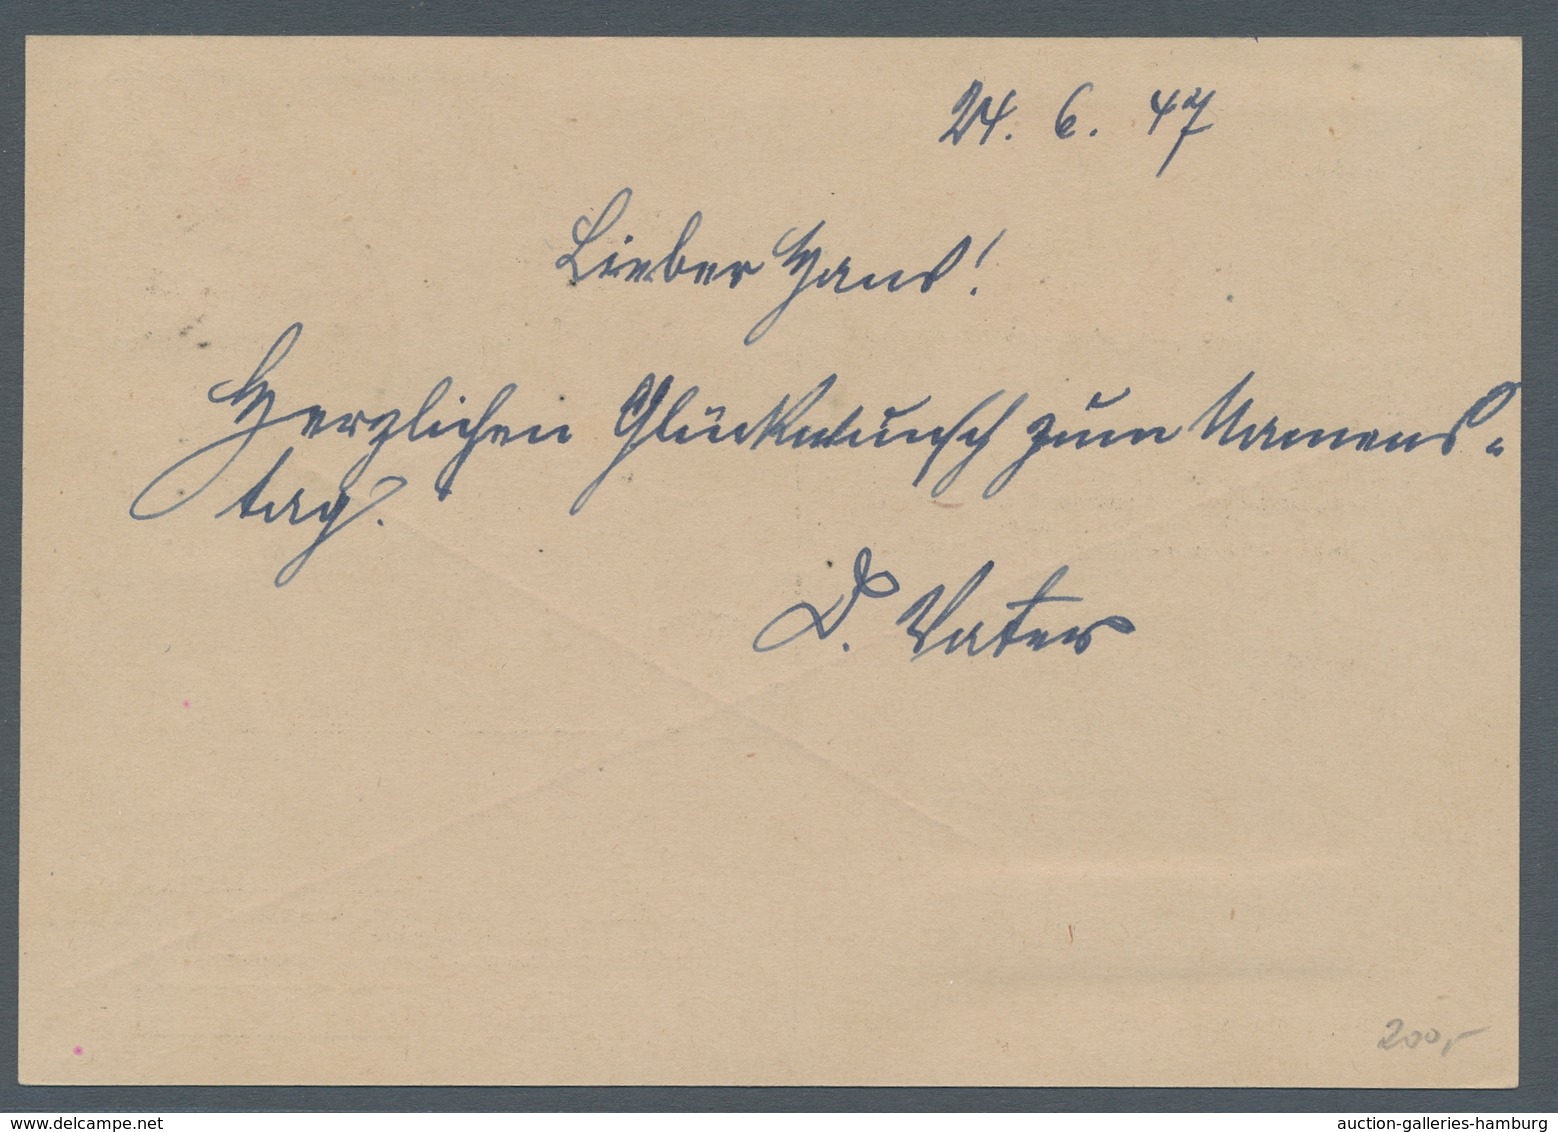 24. 6. 47
Lieber Hans!
Herzlichen Glückwunsch zum Namens-
tag.
D. Vater
200,-
www.delcampe.net
auction-galleries-hamburg